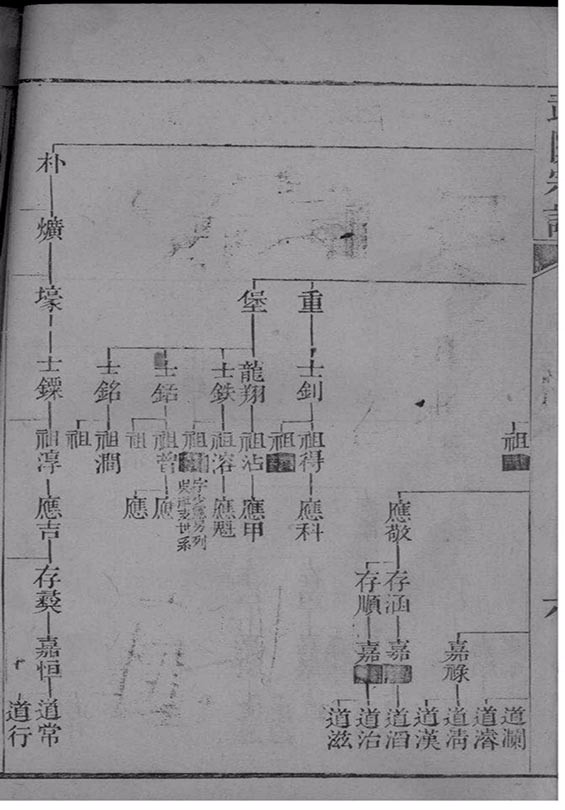 宗譜
六
祖
應敬
存涵
存順
嘉祿
嘉
嘉
道瀾
道濬
道淸
道漢
道滔
道治
道滋
重
士釗
祖得
應科
祖
堡
龍翔
祖沾
應甲
士鉄
祖溶
應魁
祖
字少
列
吳
世系
士
祖
應
祖
應
士銘
祖澗
祖
朴
爌
壕
士鏢
祖淳
應吉
存
嘉恒
道常
道行